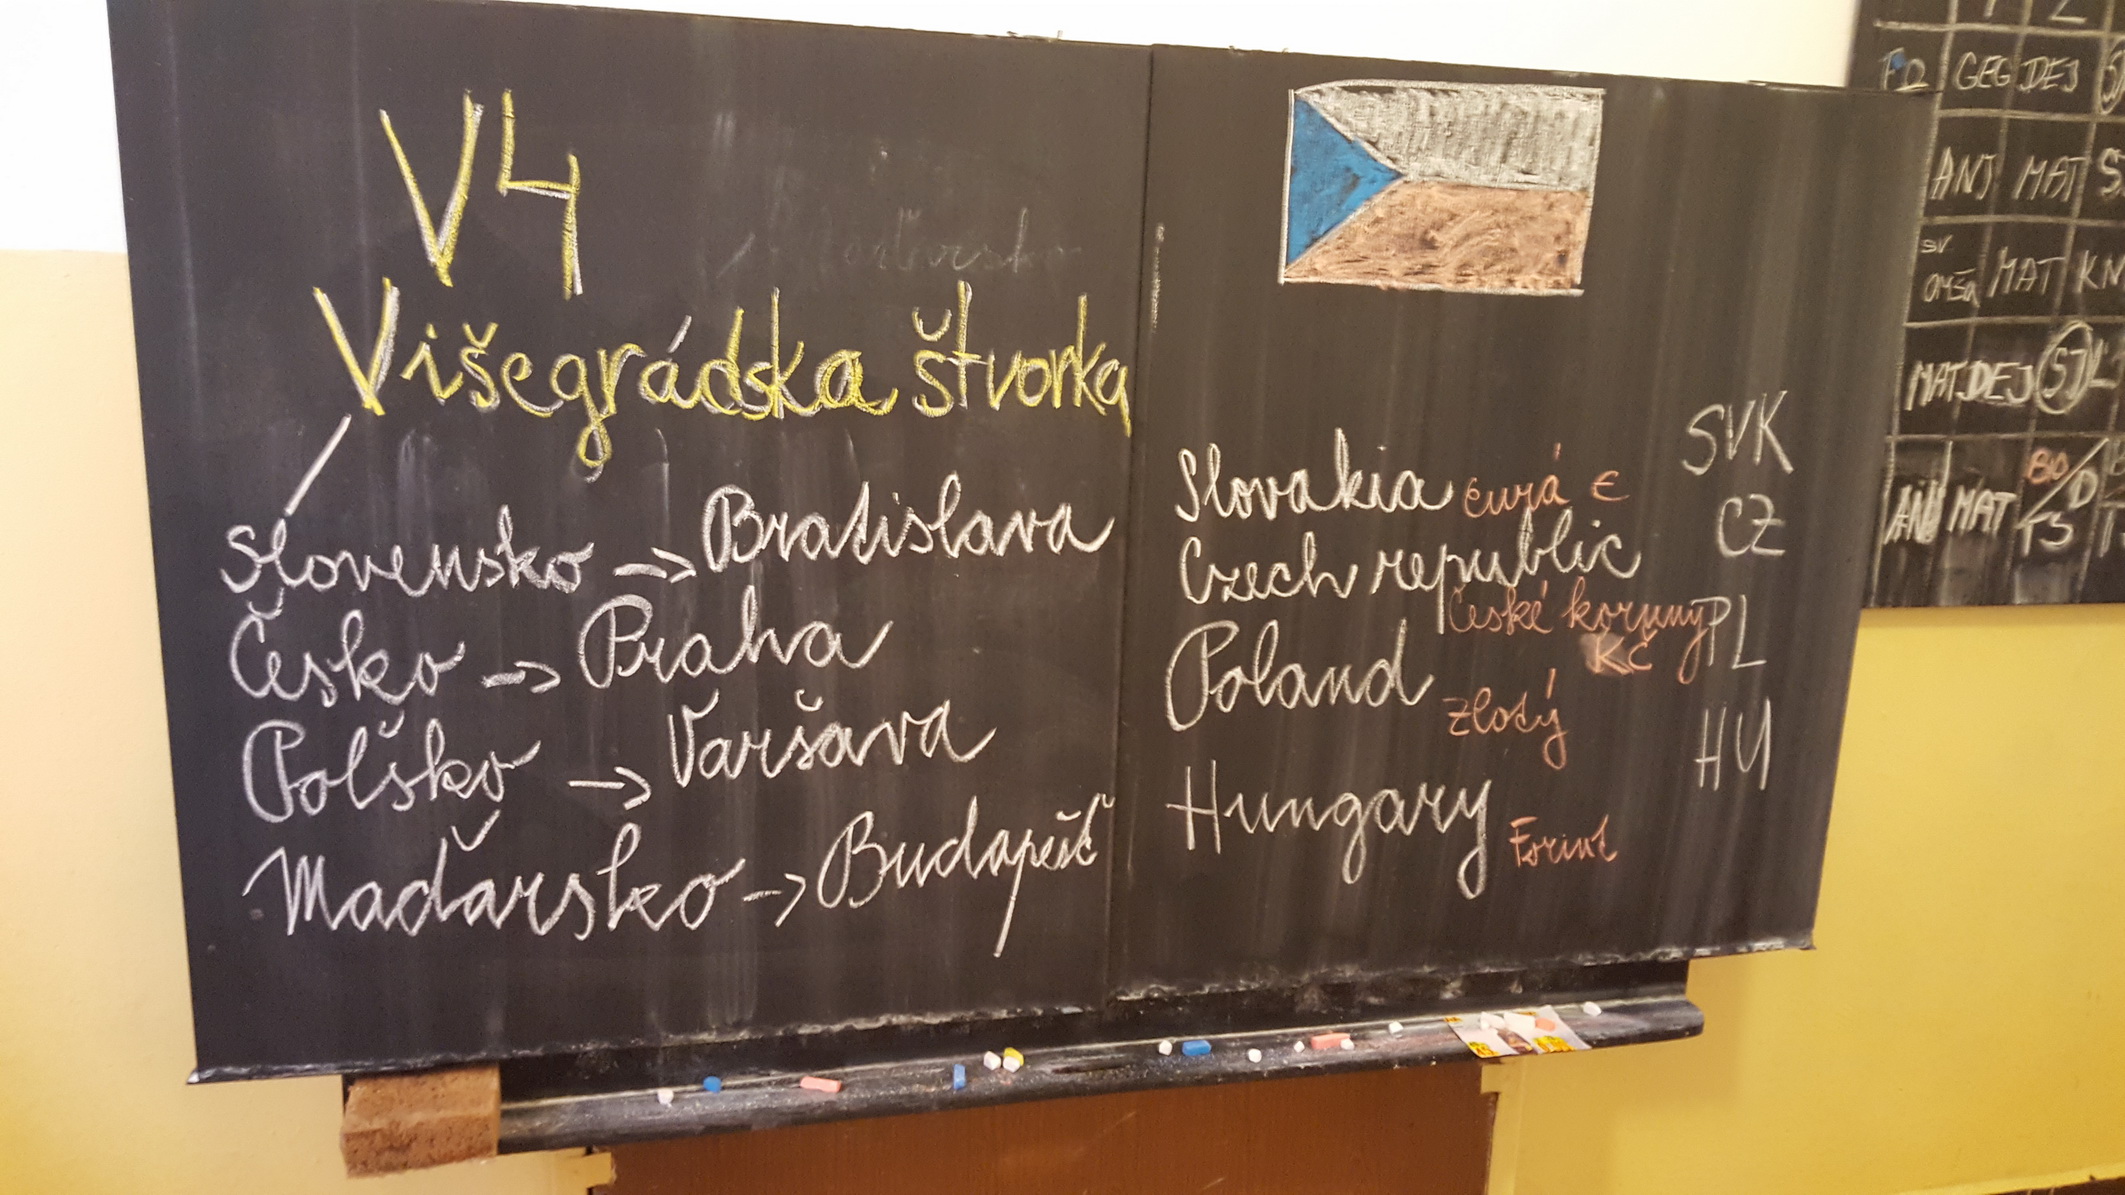 V4
Maďarsko
Višegrádska štvorka
Slovensko -> Bratislava
Česko -> Praha
Poľsko -> Varšava
Maďarsko -> Budapešť
Slovakia eurá €
Czech republic
České koruny
Kč
Poland
zlotý
Hungary
Forint
SVK
CZ
PL
HU
1 2
GEG DEJ
ANJ MAT
sv
omša MAT
MAT DEJ SJL
ANJ MAT